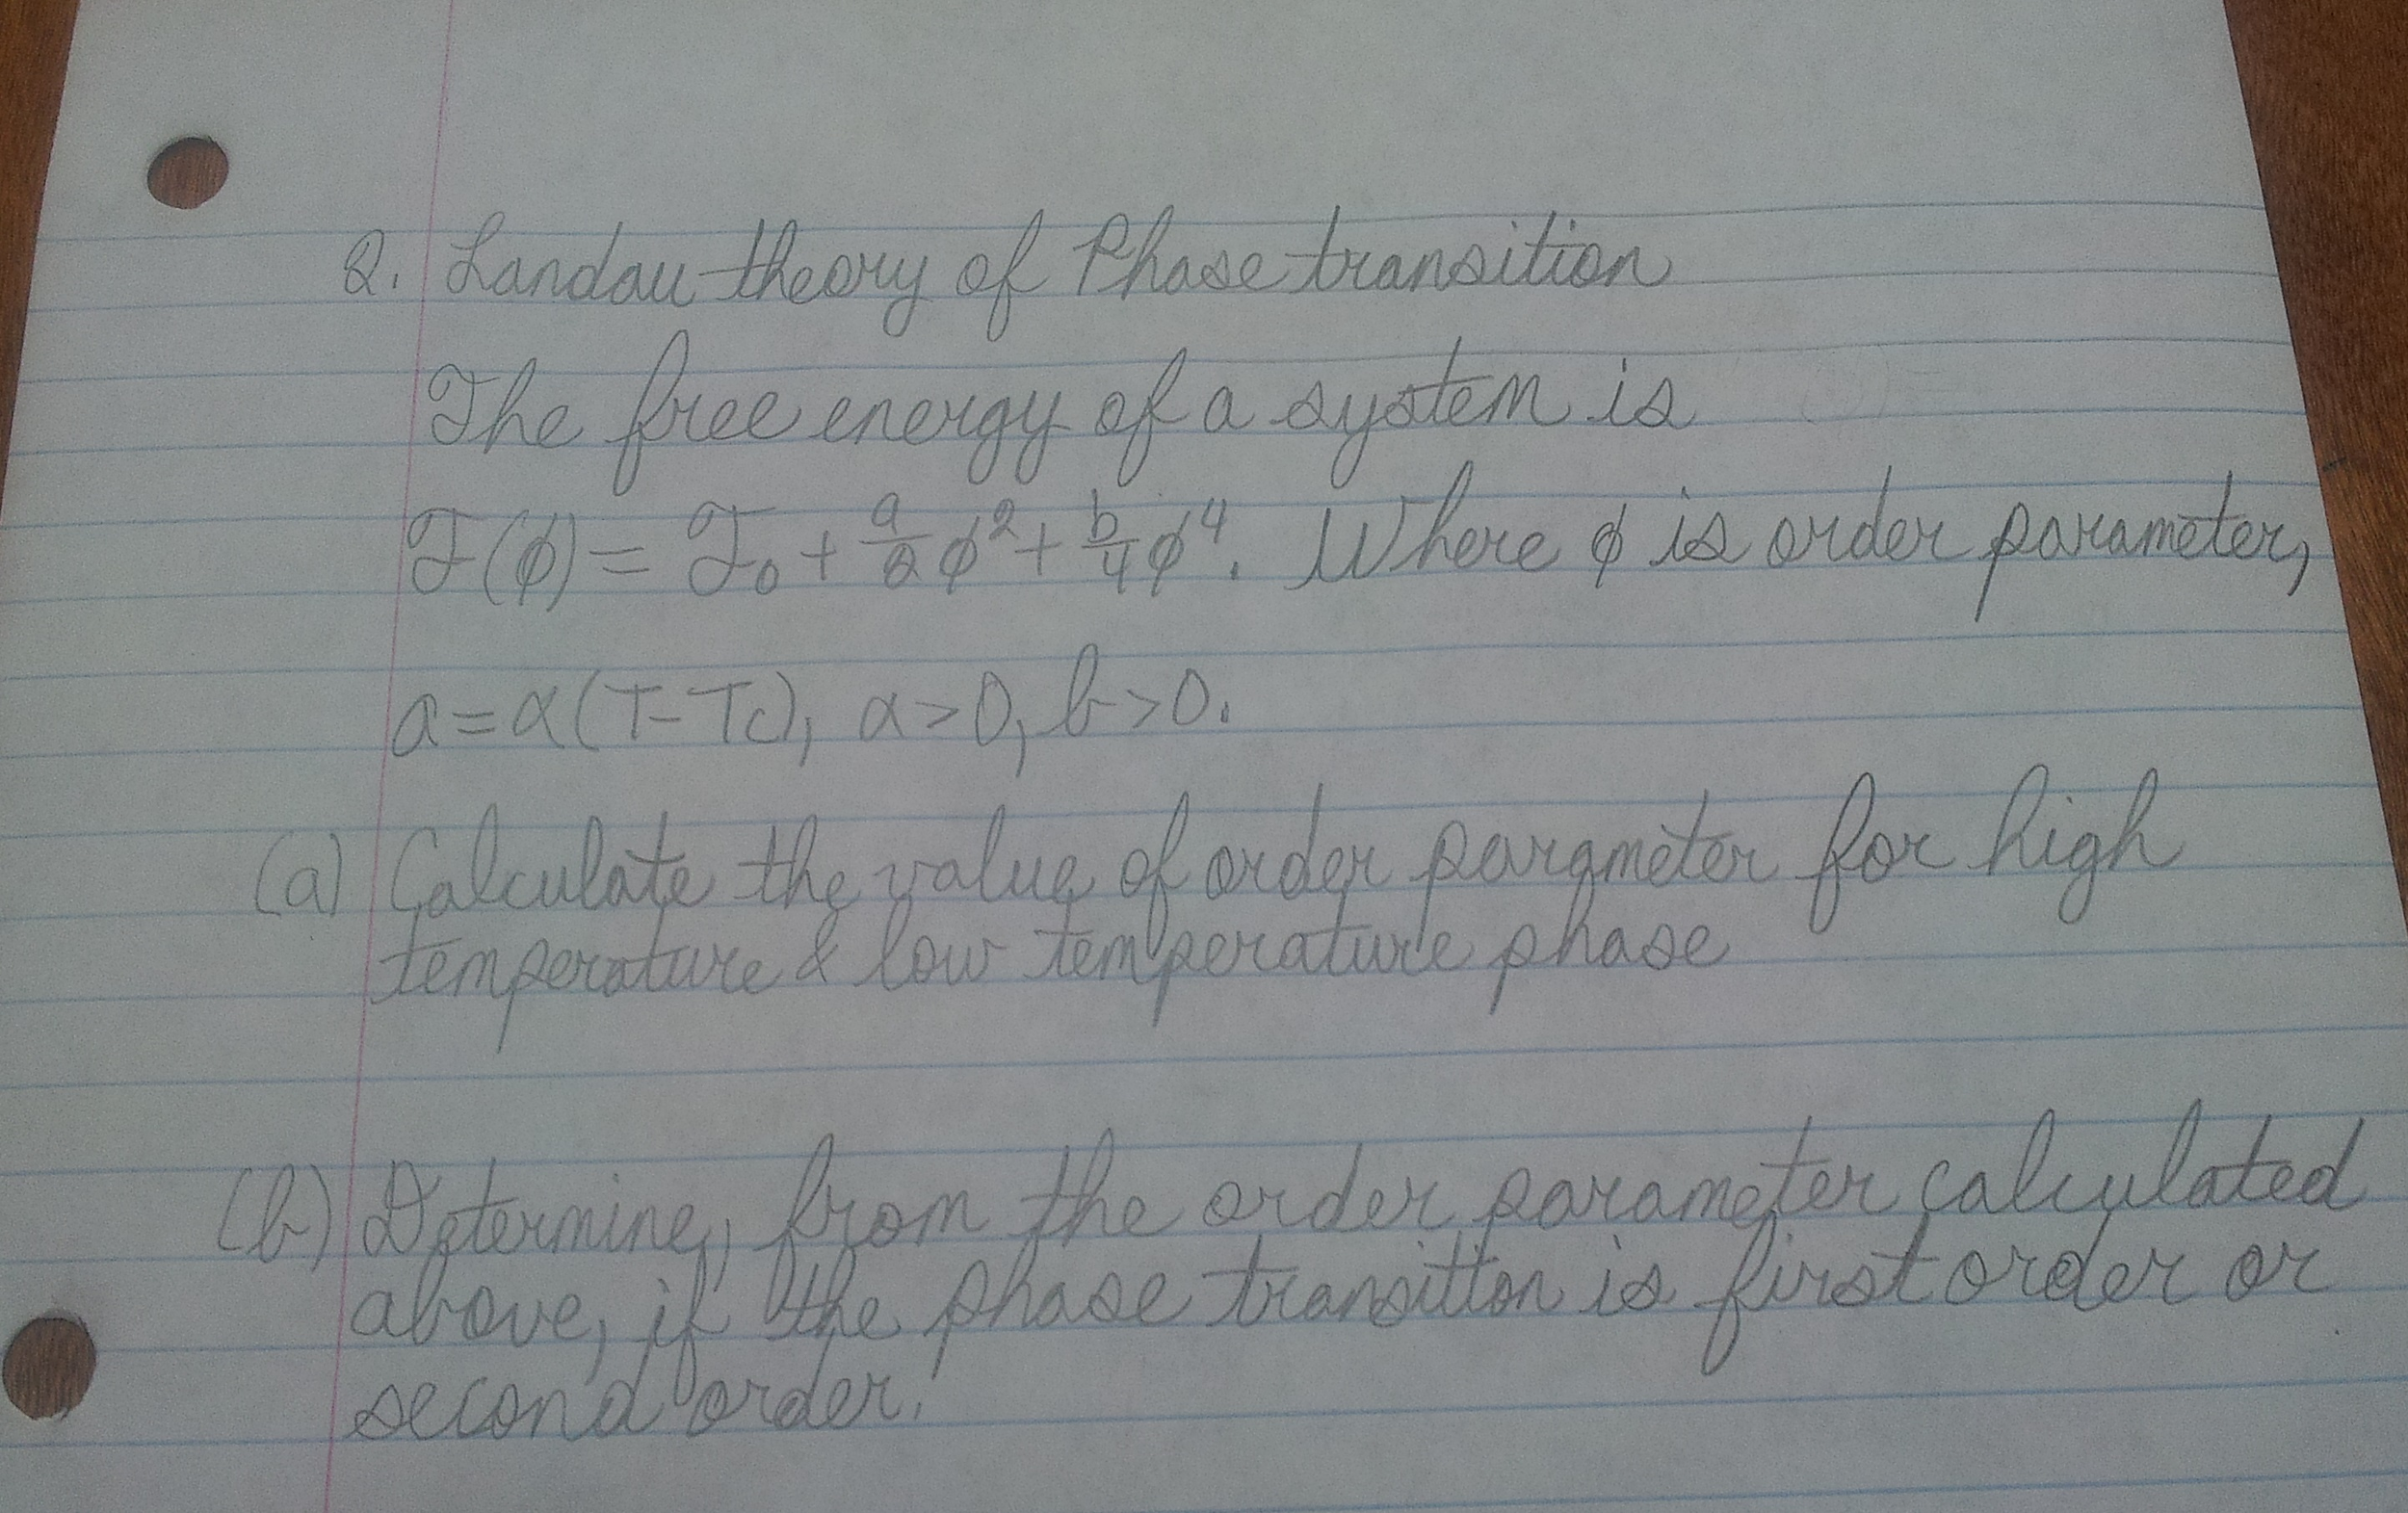 Q. Landau theory of Phase transition
The free energy of a system is
F(ϕ) = F₀ + a/2 ϕ² + b/4 ϕ⁴. Where ϕ is order parameter,
a = α(T-Tc), α > 0, b > 0.
(a) Calculate the value of order parameter for high
temperature & low temperature phase
(b) Determine, from the order parameter calculated
above, if the phase transition is first order or
second order.